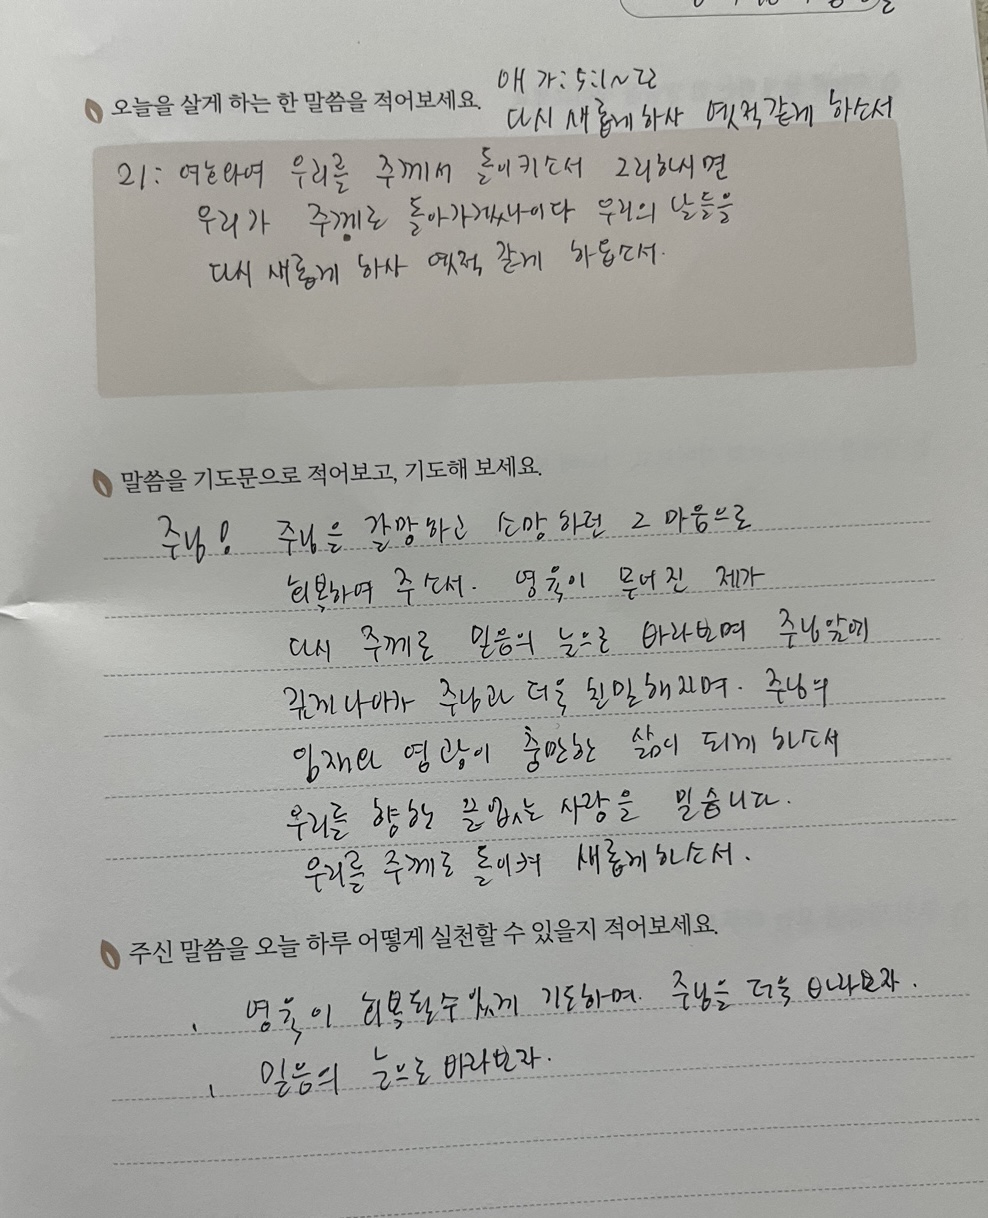 애가:5:1~22
오늘을 살게 하는 한 말씀을 적어보세요.
다시 새롭게 하사 옛적같게 하소서
21: 여호와여 우리를 주께서 돌이키소서 그리하시면
우리가 주께로 돌아가겠나이다 우리의 날들을
다시 새롭게 하사 옛적 같게 하옵소서.
말씀을 기도문으로 적어보고, 기도해 보세요.
주님! 주님을 갈망하고 소망하던 그 마음으로
회복하여 주소서. 영육이 무너진 제가
다시 주께로 믿음의 눈으로 바라보며 주님앞에
나아가 주님과 더욱 친밀해지며. 주님의
임재와 영광이 충만한 삶이 되게 하소서
우리를 향한 끝없는 사랑을 믿습니다.
우리를 주께로 돌이켜 새롭게하소서.
주신 말씀을 오늘 하루 어떻게 실천할 수 있을지 적어보세요.
영육이 회복될수있게 기도하며. 주님을 더욱 바라보자.
믿음의 눈으로 바라보자.